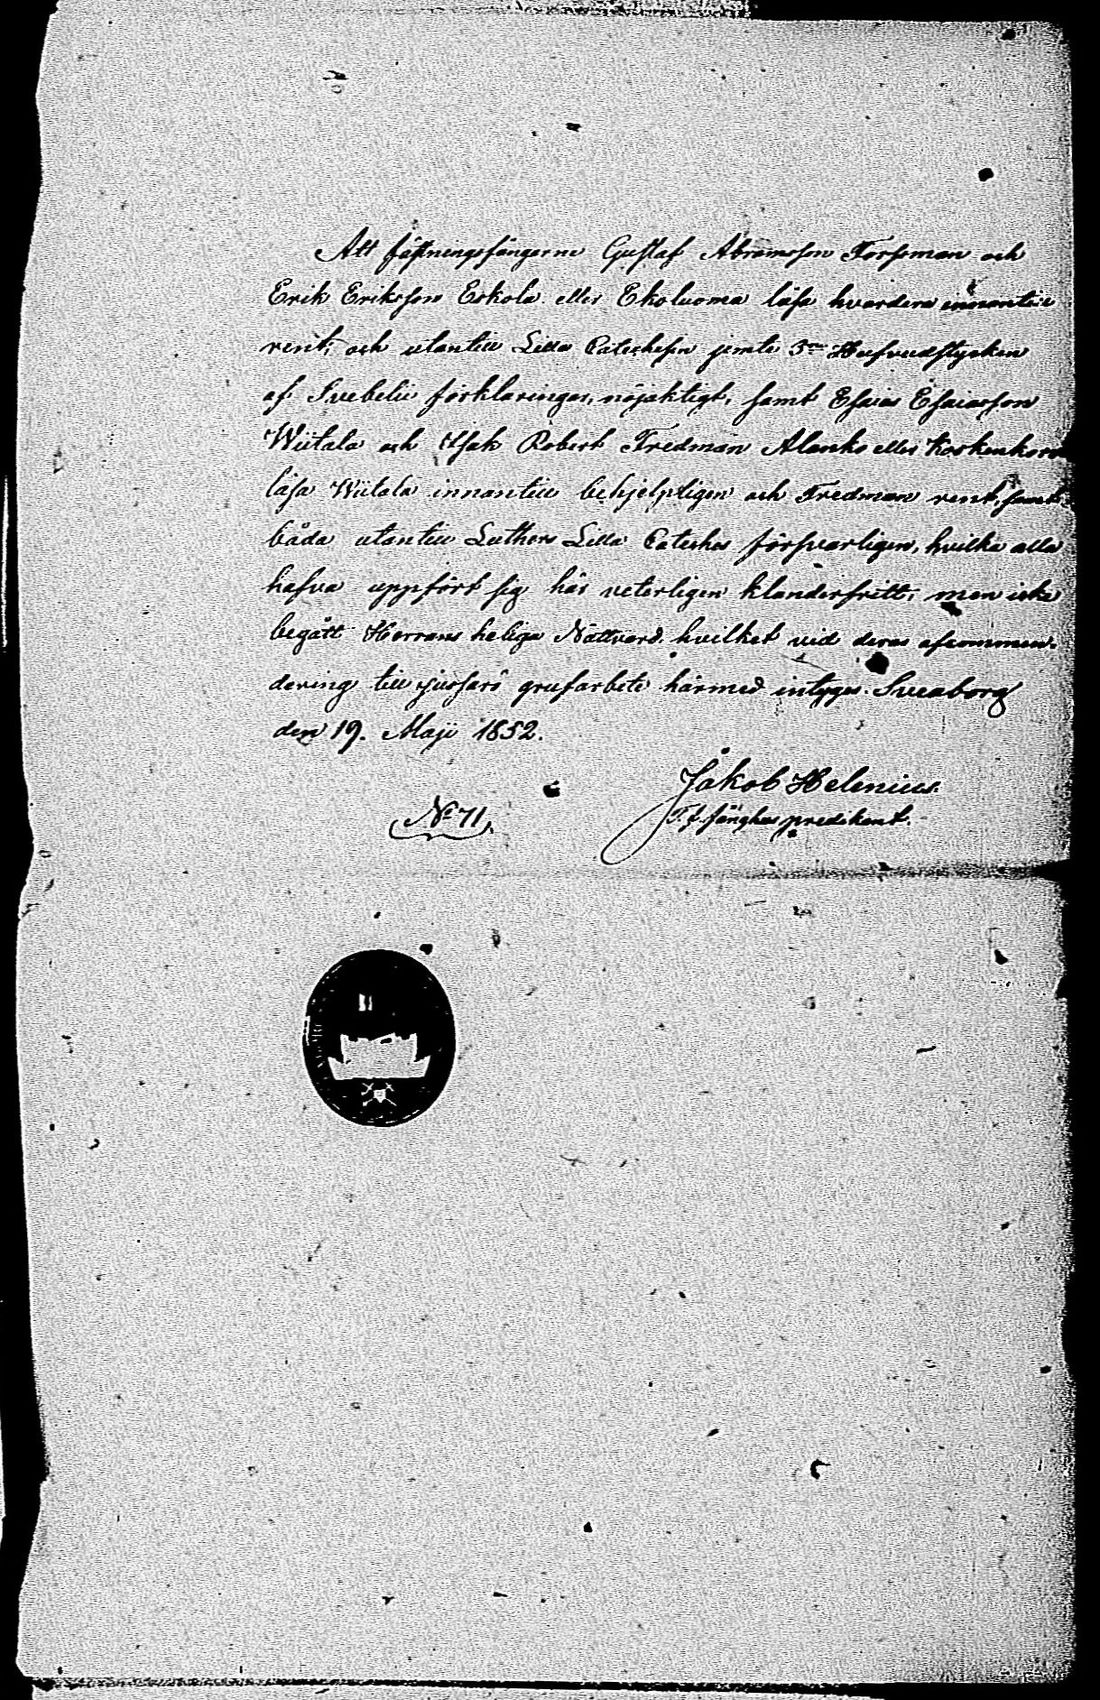 Att fästningsfångarne Gustaf Abramsson Forssman och
Erik Eriksson Eskola eller Ekoluoma läsa hvardera innantill
rent, och utantill Lilla Catechesen jemte 3ne Hufvudstycken
af Svebelii förklaringar, nöjaktigt, samt Esaias Esaiasson
Wiitala och Isak Robert Fredman Alanko eller
läsa Wiitala innantill behjelpligen och Fredman rent, samt
båda utantill Luthers Lilla Cateches försvarligen, hvilka alla
hafva uppfört sig här veterligen klanderfritt, men icke
begått Herrans heliga Nattvard, hvilket vid deras afcommen-
dering till Jussarö grufarbete härmed intygas. Sveaborg
den 19. Maji 1852.
Jakob Helenius.
No 71.
T. f. fånghus predikant.